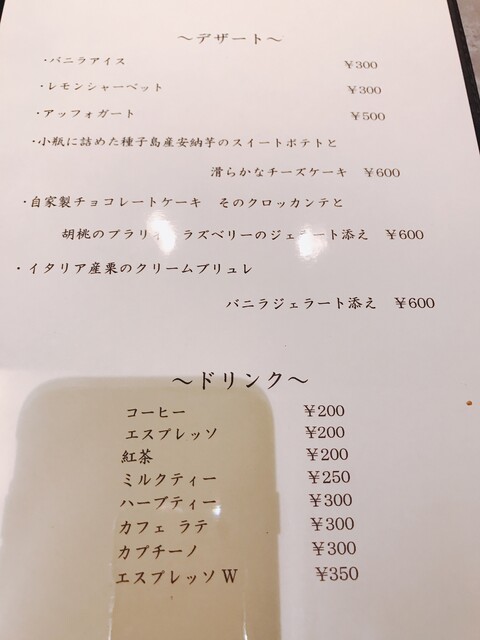 ～デザート～
・バニラアイス ￥300
・レモンシャーベット ￥300
・アッフォガート ￥500
・小瓶に詰めた種子島産安納芋のスイートポテトと
滑らかなチーズケーキ ￥600
・自家製チョコレートケーキ そのクロッカンテと
胡桃のプラリ ラズベリーのジェラート添え ￥600
・イタリア産栗のクリームブリュレ
バニラジェラート添え ￥600
～ドリンク～
コーヒー ￥200
エスプレッソ ￥200
紅茶 ￥200
ミルクティー ￥250
ハーブティー ￥300
カフェ ラテ ￥300
カプチーノ ￥300
エスプレッソ W ￥350